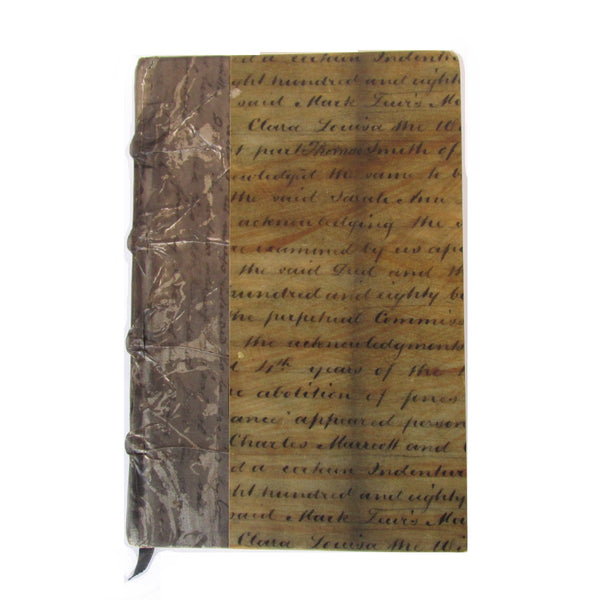 d a certain Indentur
ght hundred and eighty
said Mark Tewis Ma
Clara Louisa the
t part Thomas Smith of
the same h b
the said Sarah Ann
acknowledging the s
examined by us apa
the said Deed and th
hundred and eighty b
the perpetual Commiss
the acknowledgments
4th years of the
e abolition of fines
ance appeared person
Charles Marriott and C
d a certain Indentur
ght hundred and eighty
said Mark Tewis Ma
Clara Louisa the